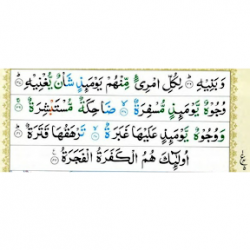 وَبَنِيْهِ ؕ لِكُلِّ امْرِئٍ مِّنْهُمْ يَوْمَىِٕذٍ شَاْنٌ يُّغْنِيْهِ ؕ
وُجُوْهٌ يَّوْمَىِٕذٍ مُّسْفِرَةٌ ۙ ضَاحِكَةٌ مُّسْتَبْشِرَةٌ ۚ
وَوُجُوْهٌ يَّوْمَىِٕذٍ عَلَيْهَا غَبَرَةٌ ۙ تَرْهَقُهَا قَتَرَةٌ ؕ
اُولٰٓىِٕكَ هُمُ الْكَفَرَةُ الْفَجَرَةُ